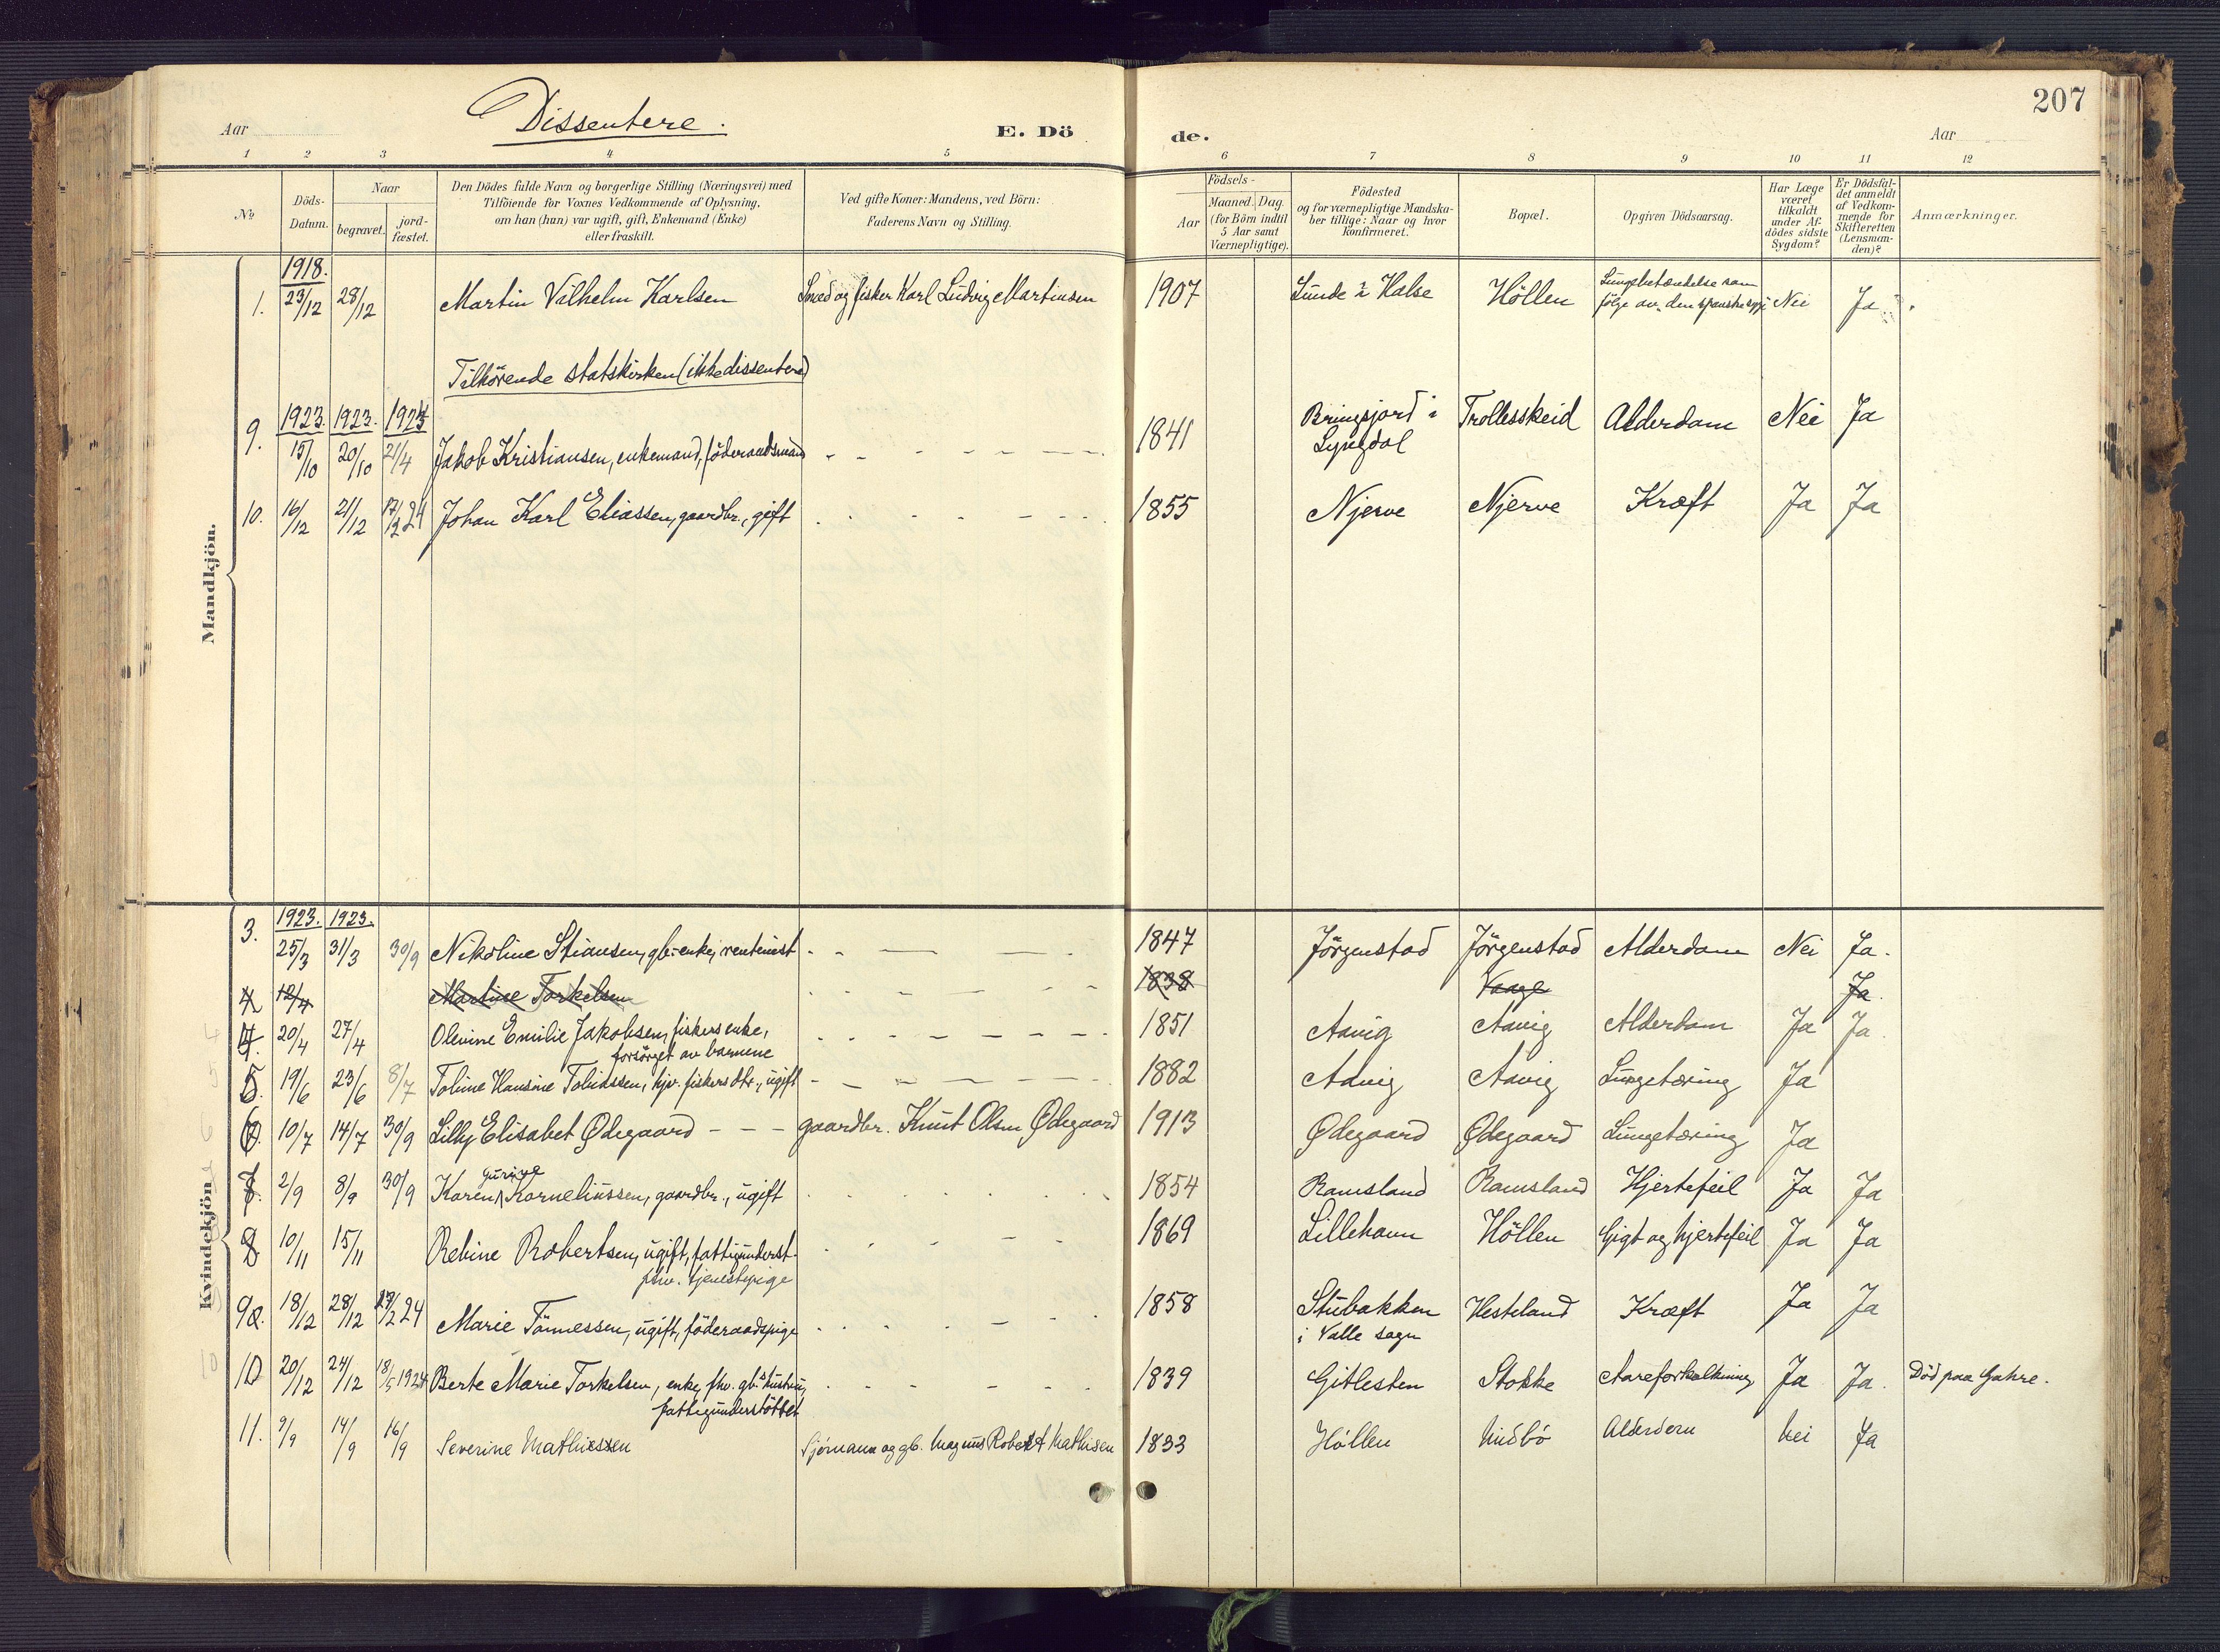 207
Aar Dissentere. E. Dö de. Aar
1 2 3 4 5 6 7 8 9 10 11 12
No
Döds-Datum.
Naar
begravet.
jord-fæstet.
Den Dödes fulde Navn og borgerlige Stilling (Næringsvei) med
Tilföiende for Voxnes Vedkommende af Oplysning,
om han (hun) var ugift, gift, Enkemand (Enke)
eller fraskilt.
Ved gifte Koner: Mandens, ved Börn:
Faderens Navn og Stilling.
Födsels-
Aar
Maaned. Dag.
(for Börn indtil
5 Aar samt
Værnepligtige).
Födested
og for værnepligtige Mandska-
ber tillige: Naar og hvor
konfirmeret.
Bopæl.
Opgiven Dödsaarsag.
Har Læge
været
tilkaldt
under Af-
dödes sidste
Sygdom?
Er Dödsfal-
det anmeldt
af Vedkom-
mende for
Skifteretten
(Lensman-
den)?
Anmærkninger.
Mandkjön.
1918.
1. 23/12 28/12 Martin Vilhelm Karlsen Smed og fisker Karl Ludvig Martinsen 1907 Lunde i Halse Höllen Lungebetændelse som følge av "den spanske syge" Nei Ja
Tilhörende statskirken (ikke dissentere)
1923. 1923. 1924
9. 15/10 20/10 21/4 Jakob Kristiansen, enkemand, föderaadsmand 1841 Bringsjord i Lyngdal Trollesskeid Alderdom Nei Ja
10. 16/12 21/12 17/2 24 Johan Karl Eliassen, gaardbr., gift 1855 Njerve Njerve Kræft Ja Ja
Kvindekjön.
1923. 1923.
3. 25/3 31/3 30/9 Nikoline Stiansen, gb.enke, rentenist 1847 Jörgenstad Jörgenstad Alderdom Nei Ja.
4 12/4 Martine Torkelsen 1838 Vaage Ja.
4. 20/4 27/4 Olevine Emilie Jakobsen, fiskers enke,
forsörget av barnene 1851 Aavig Aavig Alderdom Ja Ja.
5. 19/6 23/6 8/7 Tobine Hansine Tobiassen, hjv. fiskers dtr., ugift 1882 Aavig Aavig Lungetæring Ja
6. 10/7 14/7 30/9 Lilly Elisabet Ødegaard gaardbr. Knut Olsen Ødegaard 1913 Ødegaard Ødegaard Lungetæring Ja
7. 2/9 8/9 30/9 Karen Gurine Korneliussen, gaardbr., ugift 1854 Ramsland Ramsland Hjertefeil Ja Ja
8 10/11 15/11 Rebine Robertsen, ugift, fattigunderst.
fhv. tjenestepige 1869 Lillehavn Höllen Gigt og hjertefeil Ja Ja
9. 18/12 28/12 17/2 24 Marie Tönnessen, ugift, föderaadspige 1858 Stubakken
i Valle sogn Hesteland Kræft Ja Ja
10 20/12 24/12 18/5 1924 Berte Marie Torkelsen, enke, fhv. gb.s hustru,
fattigunderstöttet 1839 Gitlesten Stokke Aareforkalkning Ja Ja. Död paa Gahre.
11. 9/9 14/9 16/9 Severine Mathiessen Sjömann og gb. Magnus Robert Mathisen 1833 Höllen Midbö Alderdom Nei Ja